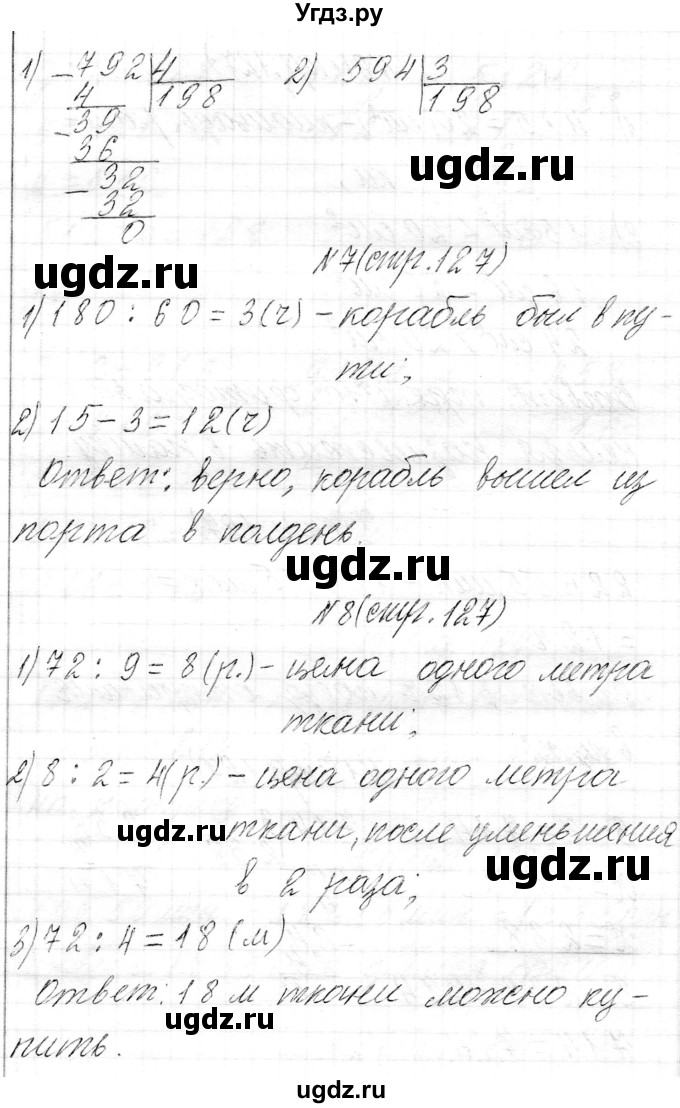 Угдз.ру
1) -792|4   2) 594|3
4   |198   |198
-39
36
ugdz.ru
-32
32
0
ugdz.ru
№7(стр.127)
1) 180 : 60 = 3(ч) - корабль был в пу-
ти;
2) 15 - 3 = 12(ч)
Ответ: верно, корабль вышел из
порта в полдень.
ugdz.ru
№8(стр.127)
1) 72 : 9 = 8 (р.) - цена одного метра
ткани;
2) 8 : 2 = 4(р.) - цена одного метра
ugdz.ru ткани, после уменьшения
ugdz.ru
в 2 раза;
3) 72 : 4 = 18 (м)
Ответ: 18 м ткани можно ку-
ugdz.ru
пить.
ugdz.ru